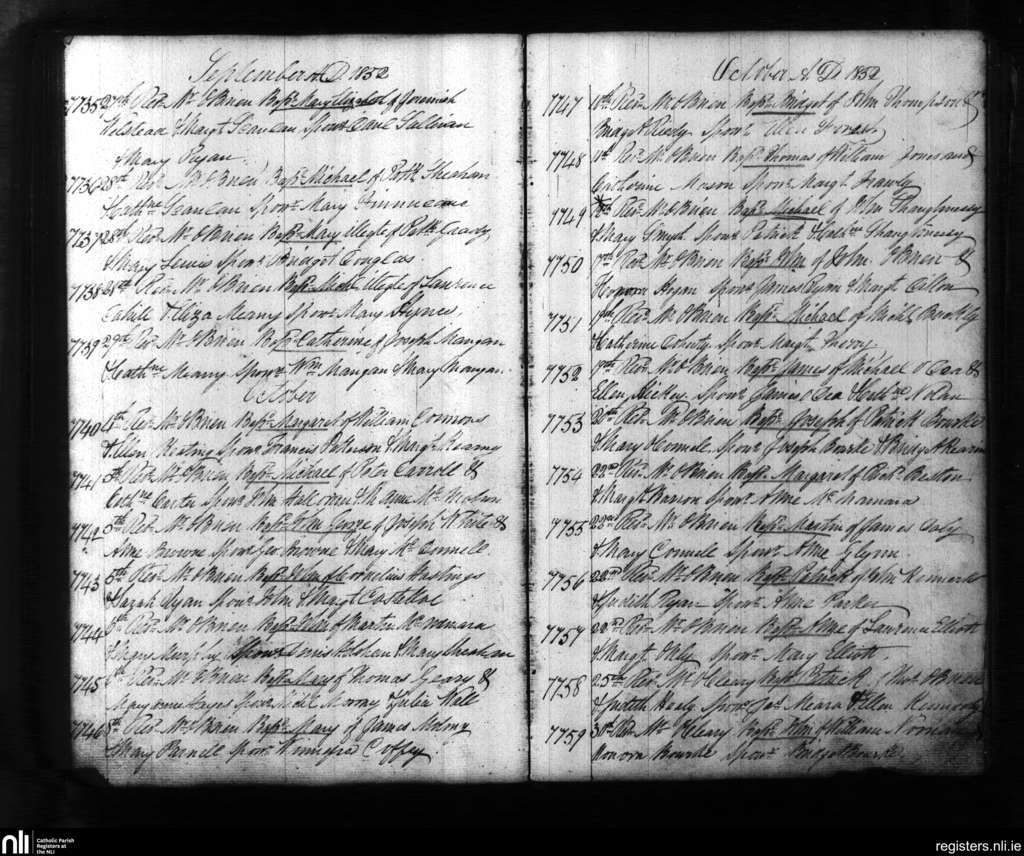 September AD 1852
7735 27th Revd Mr OBrien Bapd Mary Elizabeth of Jeremiah
& Margt Scanlan Sponr Danl Sullivan
& Mary Ryan
7736 28th Revd Mr OBrien Bapd Michael of Patk Sheahan
& Cathne Scanlan Sponr Mary
7737 28th Revd Mr OBrien Bapd Mary illegte of Patk Grady
& Mary Lewis Sponr Bridget Douglas
7738 Revd Mr OBrien Bapd Michl illegte of Lawrence
Cahill & Eliza Meany Sponr Mary Hynes
7739 29th Revd Mr OBrien Bapd Catherine of Joseph Mangan
& Cathne Meany Sponr Wm Mangan & Mary Mangan
October
7740 4th Revd Mr OBrien Bapd Margaret of William Connors
& Ellen Keating Sponr Francis Patterson & Margt
7741 Revd Mr OBrien Bapd Michael of Peter Carroll &
Cathne Carter Sponr John & Mc
7742 5th Revd Mr OBrien Bapd Wm George of Joseph White &
Anne Browne Sponr Geo Browne & Mary Mc Connell
7743 5th Revd Mr OBrien Bapd John of Cornelius Hastings
& Sarah Sponr John & Margt Costelloe
7744 5th Revd Mr OBrien Bapd of Martin Mc Namara
& Sponr & Mary Sheahan
7745 Revd Mr OBrien Bapd Mary of Thomas Geary &
Mary Anne Hayes Sponr Michl Moroney & Julia Wall
7746 8th Revd Mr OBrien Bapd Mary of James
& Mary Purnell Sponr Coffey
October AD 1852
7747 10th Revd Mr OBrien Bapd Bridget of John Thompson &
Bridget Reedy Sponr Ellen
7748 11th Revd Mr OBrien Bapd Thomas of William Jones and
Catherine Mason Sponr Margt Frawly
7749 Revd Mr OBrien Bapd Michael of John Shaughnessy
& Mary Smyth Sponr Patrick & Shaughnessy
7750 17th Revd Mr OBrien Bapd John of John OBrien &
Honora Hogan Sponr James Ryan & Margt
7751 17th Revd Mr OBrien Bapd Michael of Michl &
Catherine Sponr Margt
7752 17th Revd Mr OBrien Bapd James of Michael O Dea &
Ellen Hickey Sponr James O Dea & Nolan
7753 20th Revd Mr OBrien Bapd Joseph of Patrick Bourke
& Mary Connell Sponr Joseph Bourke & Bridget
7754 22nd Revd Mr OBrien Bapd Margaret of Preston
& Margt Sponr Anne Mc Namara
7755 22nd Revd Mr OBrien Bapd Martin of James Daly
& Mary Connell Sponr Anne Glynn
7756 22nd Revd Mr OBrien Bapd Patrick of John
& Judith Ryan Sponr Anne Parker
7757 22nd Revd Mr OBrien Bapd Anne of Lawrence Elliott
& Margt Sponr Mary Elliott
7758 25th Revd Mr OCleary Bapd Patrick of Thos OBrien
& Judith Healy Sponr Jas Meara & Ellen Kennedy
7759 30th Revd Mr OCleary Bapd John of William
Honora Bourke Sponr Bridget Bourke
nli Catholic Parish
Registers at
the NLI
registers.nli.ie